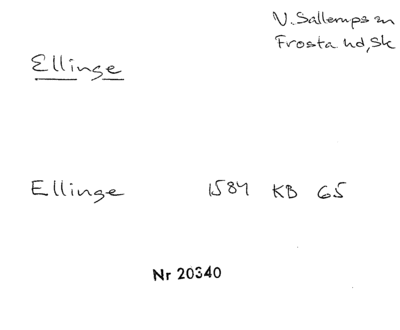 V. Sallerups sn
Frosta hd, Sk
Ellinge
Ellinge 1584 KB 65
Nr 20340